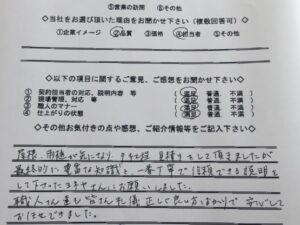 ⑤営業の訪問 ⑥その他
◇当社をお選び頂いた理由をお聞かせ下さい(複数回答可)
①企業イメージ ②品質 ③価格 ④担当者 ⑤その他
◇以下の項目に関するご意見、ご感想をお聞かせ下さい◇
① 契約担当者の対応、説明内容 等 (満足 普通 不満)
② 現場管理、対応 等 (満足 普通 不満)
③ 職人のマナー (満足 普通 不満)
④ 仕上がりの状態 (満足 普通 不満)
◇その他お気付きの点や感想、ご紹介情報等をご記入下さい◇
屋根、雨樋が気になり、 見積りをして頂きましたが
最終的に豊富な知識と、一番丁寧で信頼できる説明を
して下さった さんにお願いしました。
職人さん達も皆さん礼儀正しく良い方ばかりで安心して
お任せできました。